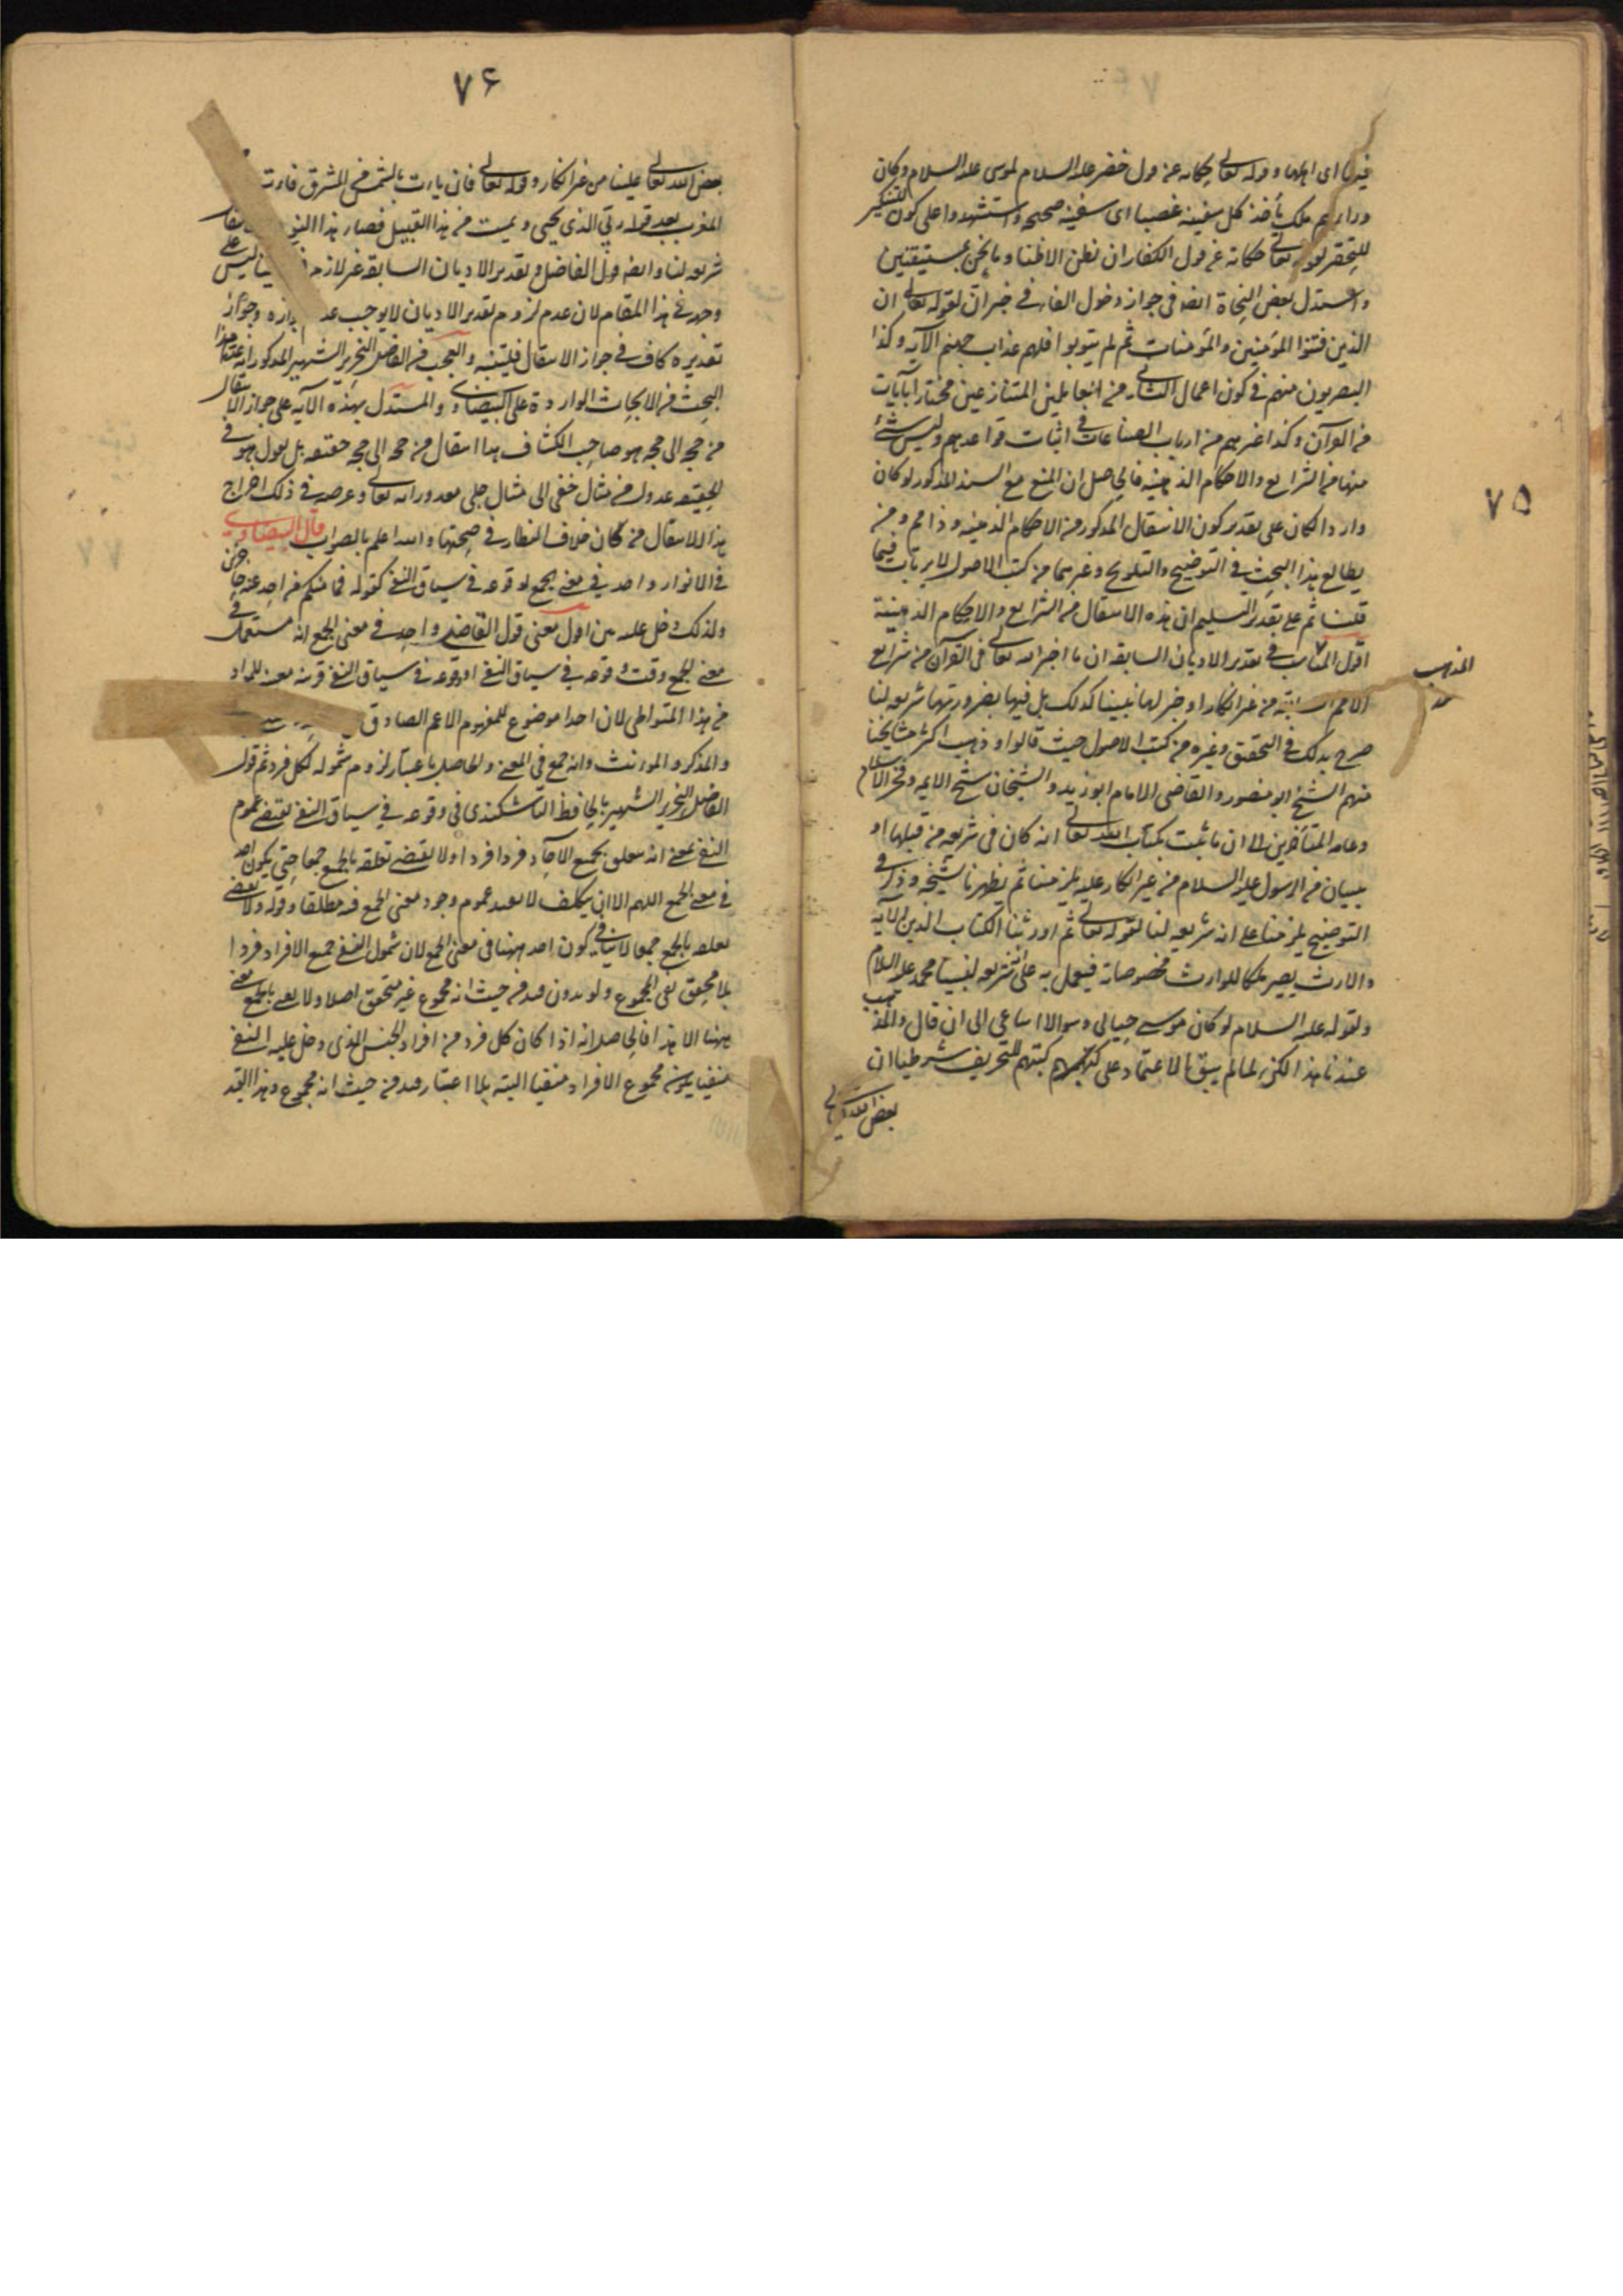 ٧٥
فيها اى اهلها وقوله تعالى حكاية عن قول خضر عليه السلام لموسى عليه السلام وكان
وراءهم ملك يأخذ كل سفينة غصبا اى سفينة صحيحة واستشهدوا على كون التنكير
للتحقير لقوله تعالى حكاية عن قول الكفار ان نظن الا ظنا وما نحن بمستيقنين
واستدل بعض النحاة ايضا فى جواز دخول الفاء فى خبر ان لقوله تعالى ان
الذين فتنوا المؤمنين والمؤمنات ثم لم يتوبوا فلهم عذاب جهنم الآية وكذا
البصريون منهم فى كون اعمال الثانى من العاملين المتنازعين مختارا بآيات
من القرآن وكذا غيرهم من ارباب الصناعات فى اثبات قواعدهم وليس شئ
منها من الشرايع والاحكام الدينية فالحاصل ان المنع مع السند المذكور لو كان
واردا لكان على تقدير كون الانتقال المذكور من الاحكام الدينية وذا مم ومن
يطالع هذا البحث فى التوضيح والتلويح وغيرهما من كتب الاصول لا يرتاب فيما
قلنا ثم على تقدير تسليم ان هذه الانتقال من الشرايع والاحكام الدينية
اقول المناسب فى تقدير الاديان السابقة ان ما اخبر الله تعالى فى القرآن من شرايع
المذهب
الامم السابقة من غير انكار او خبر لها نبينا كذلك بل فيها بضرورتها شريعة لنا
صرح بذلك فى التحقيق وغيره من كتب الاصول حيث قالوا وذهب اكثر مشايخنا
منهم الشيخ ابو منصور والقاضى الامام ابو زيد والشيخان شيخ الايمة وفخر الاسلام
وعامة المتأخرين الى ان ما ثبت بكتاب الله تعالى انه كان فى شريعة من قبلها او
ببيان من الرسول عليه السلام من غير انكار عليه يلزمنا ثم يظهر ناسخه وذكر فى
التوضيح يلزمنا على انه شريعة لنا لقوله تعالى ثم اورثنا الكتاب الذين الآية
والارث يصير ملكا للوارث مخصوصا به فيعمل به على انه شريعة لنبينا محمد عليه السلام
ولقوله عليه السلام لو كان موسى حيا لما وسعه الا اتباعى الى ان قال والمذهب
عندنا هذا لكن لما لم يبق الاعتماد على كتبهم للتحريف شرطنا ان
بعض الله تعالى
٧٦
بعض الله تعالى علينا من غير انكار وقوله تعالى فان يأت بالشمس من المشرق فأت
المغرب بعد قوله ربى الذى يحيى ويميت من هذا القبيل فصار هذا
شريعة لنا وايضا قول الفاضل وتقدير الاديان السابقة غير لازم ليس على
وجه فى هذا المقام لان عدم لزوم تقدير الاديان لا يوجب عدم جوازه وجواز
تقديره كاف فى جواز الانتقال فليتنبه والعجب من الفاضل النحرير الشهير المذكور
البحث من الابحاث الواردة على البيضاوى والمستدل بهذه الآية على جواز الانتقال
من حجة الى حجة هو صاحب الكشاف هذا انتقال من حجة الى حجة حقيقة بل يقول هو فى
الحقيقة عدول من مثال خفى الى مثال جلى مقدوراته تعالى وغرضه فى ذلك اخراج
هذا الانتقال من كان خلاف النظار فى صحتها والله اعلم بالصواب قال البيضاوى
فى الانوار واحد فى معنى الجمع لوقوعه فى سياق النفى كقوله فما منكم من احد عنه حاجزين
ولذلك دخل عليه بين اقول معنى قول القاضى واحد فى معنى الجمع انه مستعمل فى
معنى الجمع وقت وقوعه فى سياق النفى او وقوعه فى سياق النفى قرينة معينة للمراد
من هذا المتواطى لان احدا موضوع للمفهوم الاعم الصادق
والمذكر والمؤنث وانه جمع فى المعنى والحاصل باعتبار لزوم شموله لكل فرد ثم قول
الفاضل النحرير الشهير بالحافظ التاشكندى فى وقوعه فى سياق النفى يقتضى عموم
النفى بمعنى انه متعلق بجميع الآحاد فردا فردا ولا يقتضى تعلقه بالجمع جمعا حتى يكون احد
فى معنى الجمع اللهم الا ان يتكلف لا يفيد عموم وجود معنى الجمع فيه مطلقا وقوله ولا يقتضى
تعلقه بالجمع جمعا لا ينافى كون احد ههنا فى معنى الجمع لان شمول النفى جميع الافراد فردا
بلا تحقق نفى المجموع ولو بدون قصد من حيث انه مجموع غير متحقق اصلا ولا يعنى بالجمع معنى
ههنا الا هذا فالحاصل انه اذا كان كل فرد من افراد الجنس الذى دخل عليه النفى
منفيا يكون مجموع الافراد منفيا البتة بلا اعتبار قصد من حيث انه مجموع وهذا القيد